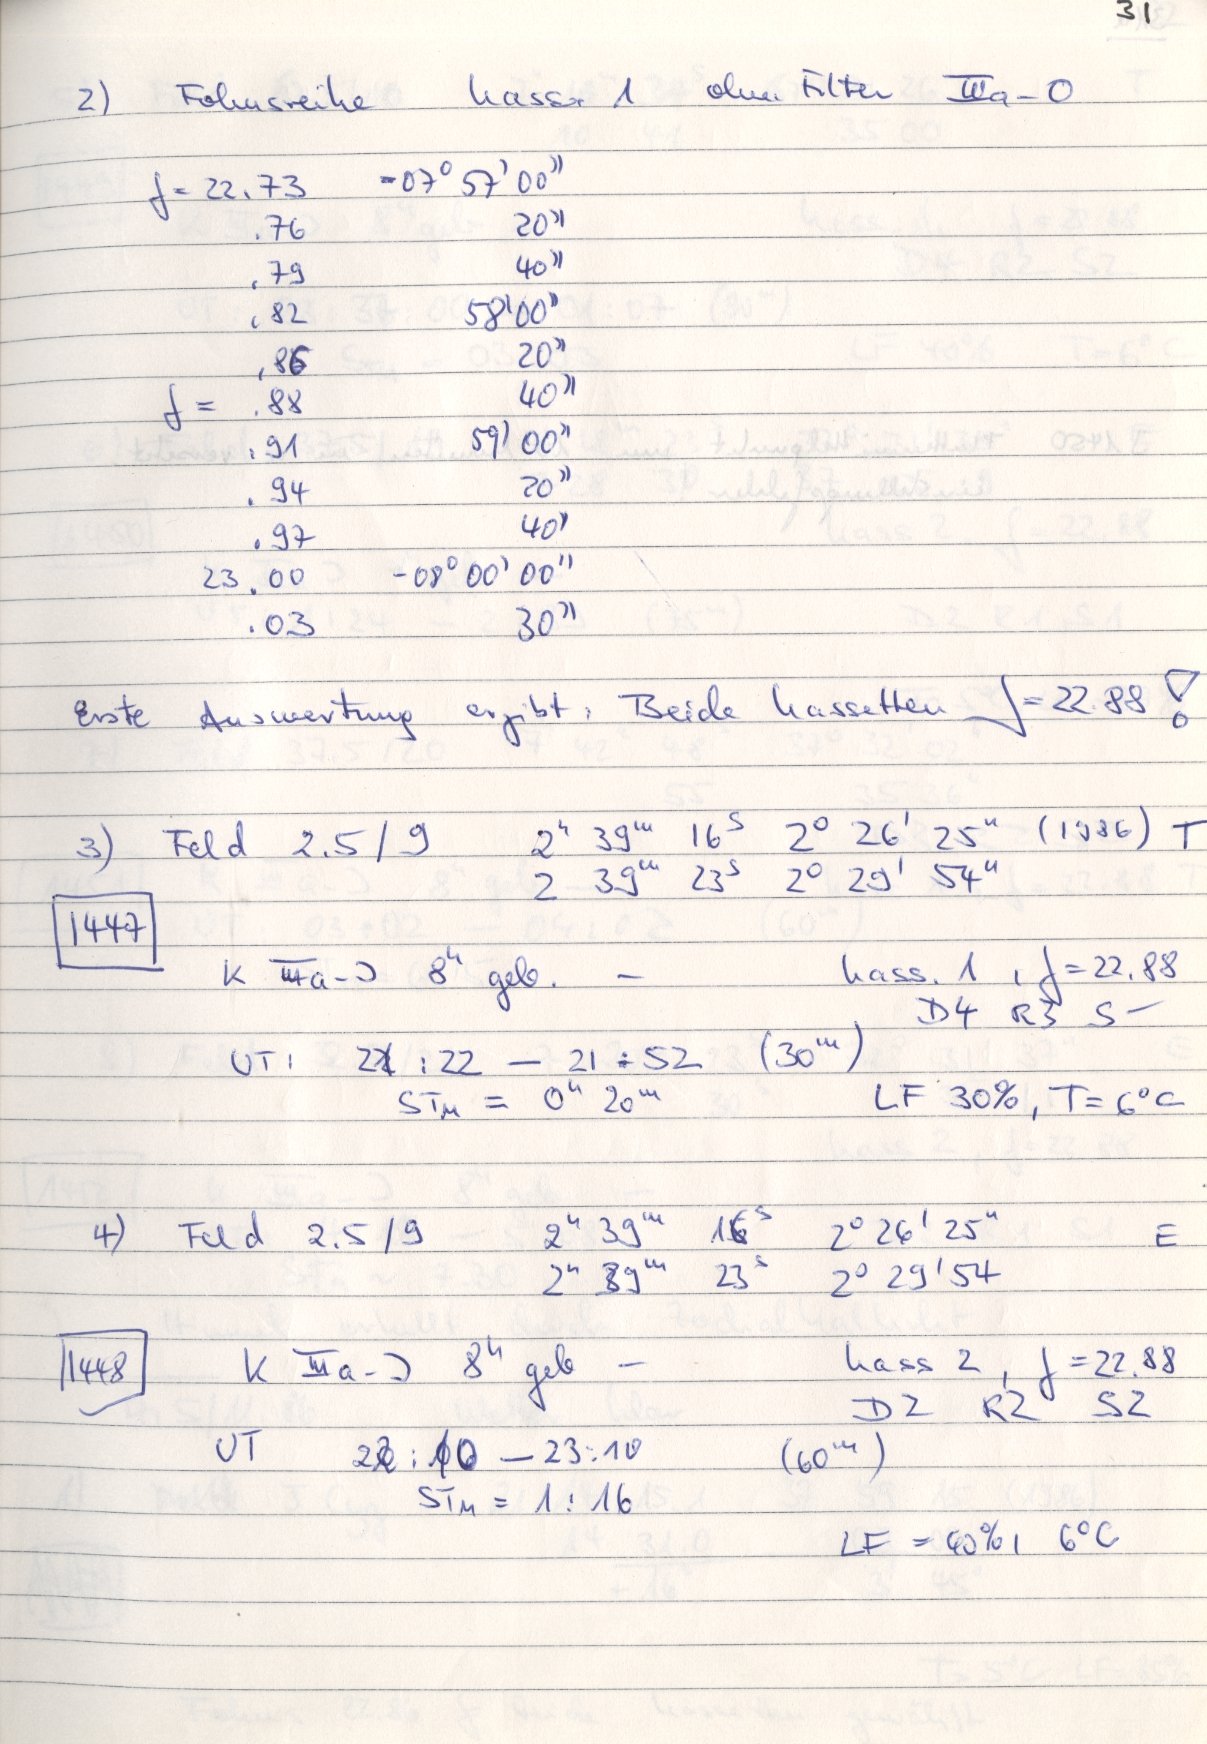 31
2) Fokusreihe Kass. 1 ohne Filter IIIa-O
f = 22.73 -07° 57' 00"
.76 20"
.79 40"
.82 58' 00"
.86 20"
f = .88 40"
.91 59' 00"
.94 20"
.97 40"
23.00 -08° 00' 00"
.03 30"
Erste Auswertung ergibt: Beide Kassetten f = 22.88 !
3) Feld 2.5/9 2h 39m 16s 2° 26' 25" (1986) T
2 39m 23s 2° 29' 54"
1447
K IIIa-J 8h geb. — Kass. 1, f = 22.88
D4 R3 S—
UT: 21:22 — 21:52 (30m)
STM = 0h 20m LF 30%, T = 6°C
4) Feld 2.5/9 2h 39m 16s 2° 26' 25" E
2h 39m 23s 2° 29' 54
1448
K IIIa-J 8h geb — Kass 2, f = 22.88
D2 R2 S2
UT 22:10 — 23:10 (60m)
STM = 1:16
LF = 40%, 6°C